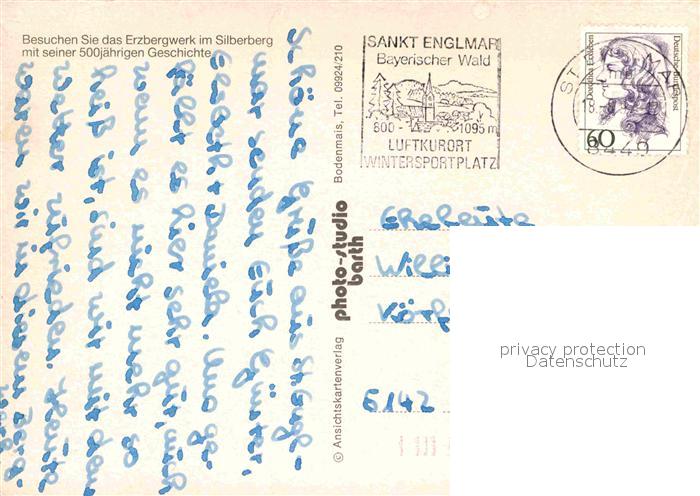 Besuchen Sie das Erzbergwerk im Silberberg
mit seiner 500jährigen Geschichte
SANKT ENGLMAR
Bayerischer Wald
800 - 1095 m
LUFTKURORT
WINTERSPORTPLATZ
Dorothea Erxleben
Deutsche Bundespost
60
8449
Schöne Grüße aus St. Engl-
mar senden Euch Günter,
Elisabeth Daniela. Uns ge-
fällt es hier sehr gut, auch
wenn es nicht mehr so
heiß ist, sind wir mit dem
Wetter zufrieden. Heute
waren wir in diesem Berg-
werk
© Ansichtskartenverlag photo-studio barth Bodenmais, Tel. 09924/210
Eheleute
Willi
5142
privacy protection
Datenschutz